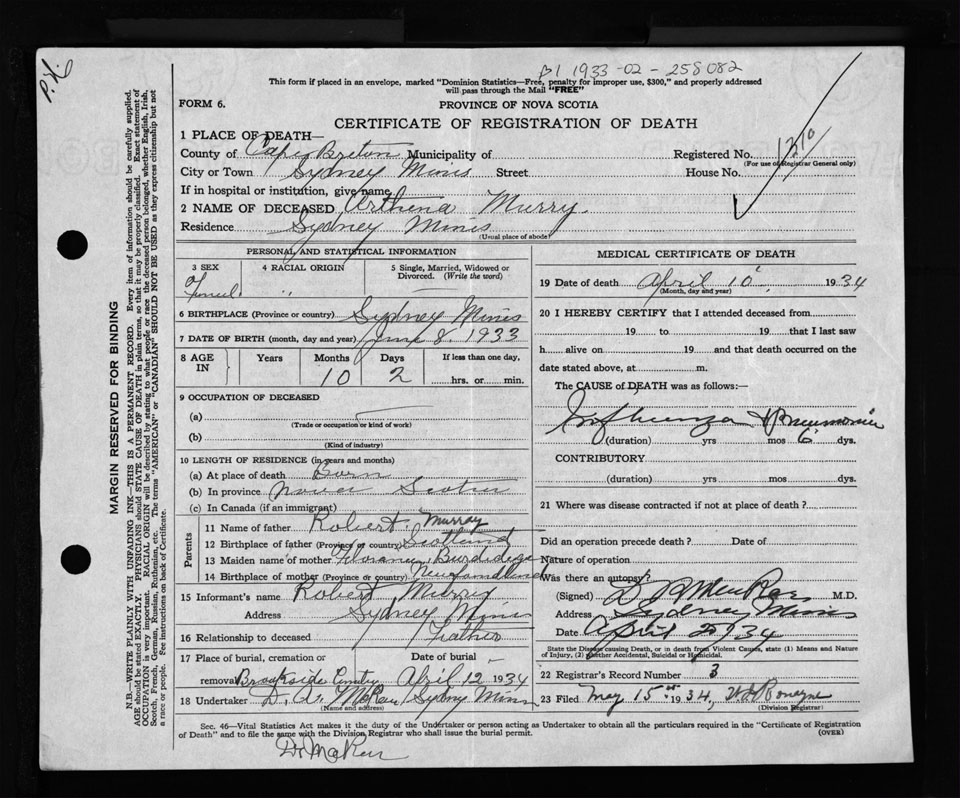 P.K.
B1 1933-02-258082
This form if placed in an envelope, marked "Dominion Statistics—Free, penalty for improper use, $300," and properly addressed
will pass through the Mail "FREE"
FORM 6. PROVINCE OF NOVA SCOTIA
CERTIFICATE OF REGISTRATION OF DEATH
1 PLACE OF DEATH—
County of Cape Breton Municipality of Registered No.
(For use of Registrar General only)
City or Town Sydney Mines Street House No.
If in hospital or institution, give name
2 NAME OF DECEASED Arthena Murry
Residence Sydney Mines
(Usual place of abode)
PERSONAL AND STATISTICAL INFORMATION
3 SEX 4 RACIAL ORIGIN 5 Single, Married, Widowed or
Divorced. (Write the word)
6 BIRTHPLACE (Province or country) Sydney Mines
7 DATE OF BIRTH (month, day and year) June 8. 1933
8 AGE IN Years Months Days If less than one day,
10 2 hrs. or min.
9 OCCUPATION OF DECEASED
(a)
(Trade or occupation or kind of work)
(b)
(Kind of industry)
10 LENGTH OF RESIDENCE (in years and months)
(a) At place of death Born
(b) In province Nova Scotia
(c) In Canada (if an immigrant)
Parents
11 Name of father Robert Murray
12 Birthplace of father (Province or country) Scotland
13 Maiden name of mother
14 Birthplace of mother (Province or country) Newfoundland
15 Informant's name Robert Murry
Address Sydney Mines
16 Relationship to deceased Father
17 Place of burial, cremation or Date of burial
removal Brookside April 12 1934
18 Undertaker D. A. McRae, Sydney Mines
(Name and address)
MEDICAL CERTIFICATE OF DEATH
19 Date of death April 10 1934
(Month, day and year)
20 I HEREBY CERTIFY that I attended deceased from
19 to 19 that I last saw
h alive on 19 and that death occurred on the
date stated above, at m.
The CAUSE of DEATH was as follows:—
Influenza & Pneumonia
(duration) yrs mos 6 dys.
CONTRIBUTORY
(duration) yrs mos dys.
21 Where was disease contracted if not at place of death?
Did an operation precede death? Date of
Nature of operation
Was there an autopsy?
(Signed) M.D.
Address Sydney Mines
Date April 34
State the Disease causing Death, or in death from Violent Causes, state (1) Means and Nature
of Injury, (2) Whether Accidental, Suicidal or Homicidal.
22 Registrar's Record Number 3
23 Filed May 15 1934,
(Division Registrar)
Sec. 46—Vital Statistics Act makes it the duty of the Undertaker or person acting as Undertaker to obtain all the particulars required in the "Certificate of Registration
of Death" and to file the same with the Division Registrar who shall issue the burial permit.
(OVER)
MARGIN RESERVED FOR BINDING
N.B.—WRITE PLAINLY WITH UNFADING INK—THIS IS A PERMANENT RECORD. Every item of information should be carefully supplied.
AGE should be stated EXACTLY. PHYSICIANS should STATE CAUSE OF DEATH in plain terms, so that it may be properly classified. Exact statement of
OCCUPATION is very important. RACIAL ORIGIN will be described by stating to what people or race the deceased person belonged, whether English, Irish,
Scotch, French, German, Russian, Ruthenian, etc. The terms "AMERICAN" or "CANADIAN" SHOULD NOT BE USED as they express citizenship but not
a race or people. See instructions on back of Certificate.